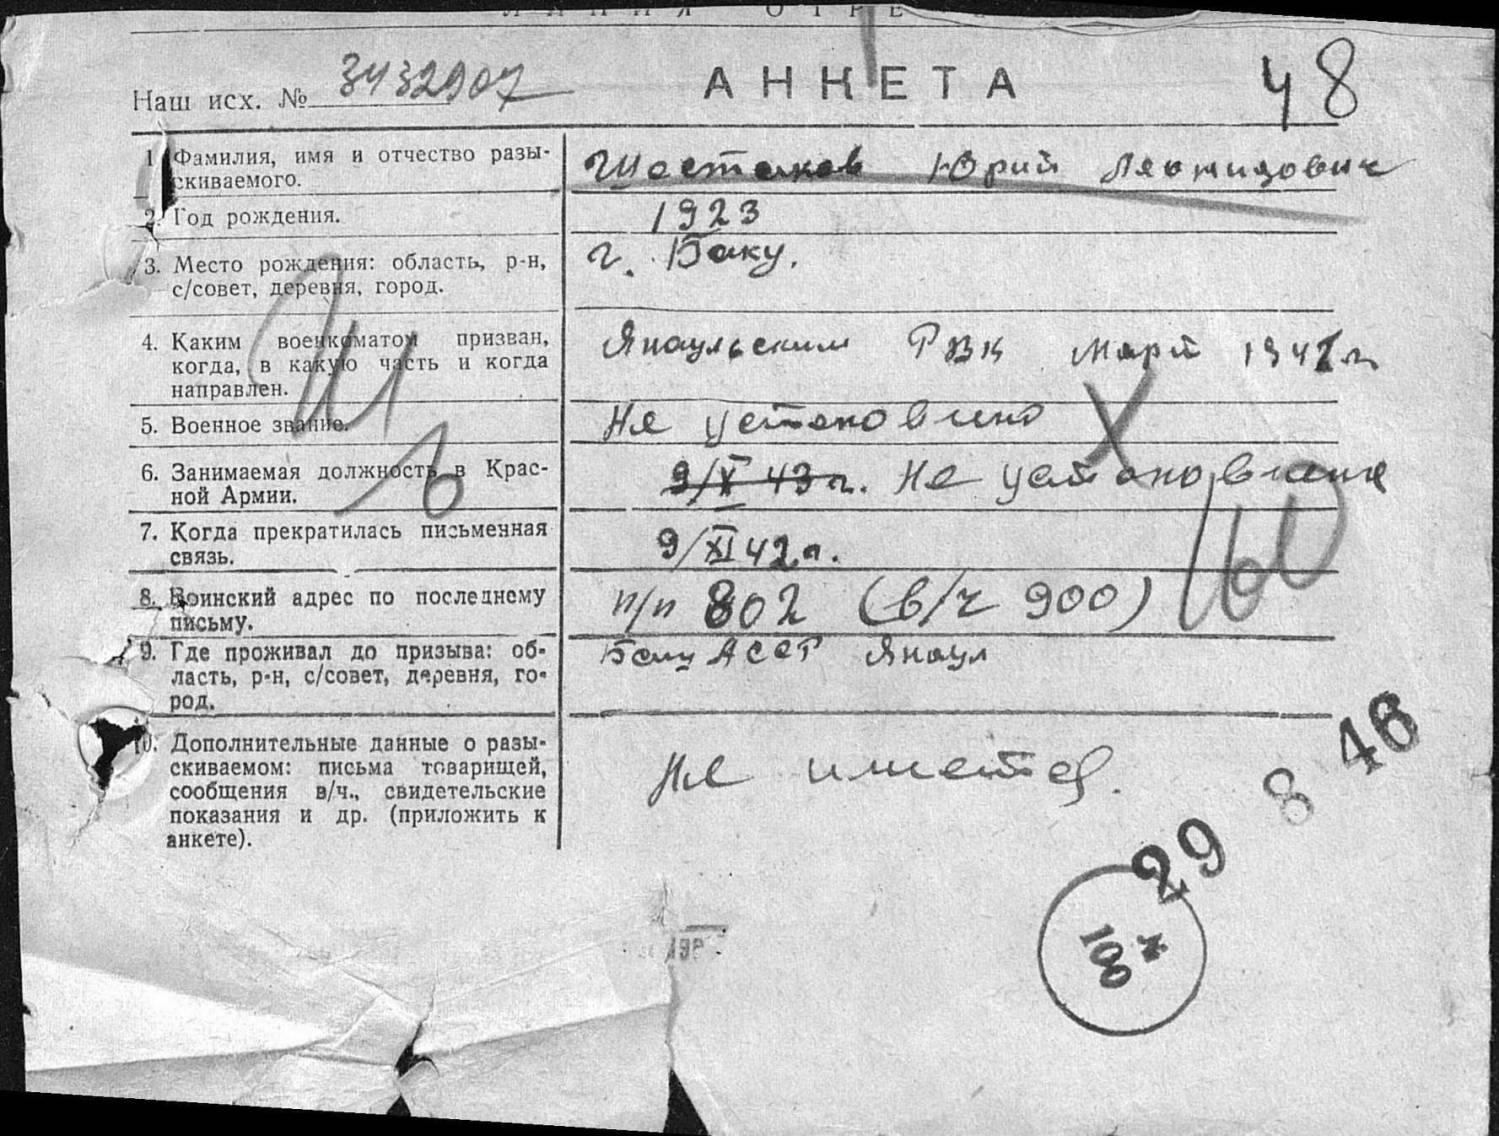 ЛИНИЯ ОТРЕ
Наш исх. № 3432907
АНКЕТА
48
1. Фамилия, имя и отчество разы-
скиваемого.
Шестаков Юрий Леонидович
2. Год рождения.
1923
3. Место рождения: область, р-н,
с/совет, деревня, город.
г. Баку.
4. Каким военкоматом призван,
когда, в какую часть и когда
направлен.
Янаульским РВК Март 1942 г
5. Военное звание.
Не установлено
6. Занимаемая должность в Крас-
ной Армии.
9/X 43 г. Не установлена
7. Когда прекратилась письменная
связь.
9/XI 42 г.
8. Воинский адрес по последнему
письму.
п/п 802 (в/ч 900)
9. Где проживал до призыва: об-
ласть, р-н, с/совет, деревня, го-
род.
Баш АССР Янаул
10. Дополнительные данные о разы-
скиваемом: письма товарищей,
сообщения в/ч., свидетельские
показания и др. (приложить к
анкете).
Не имеется.
29 8 46
100